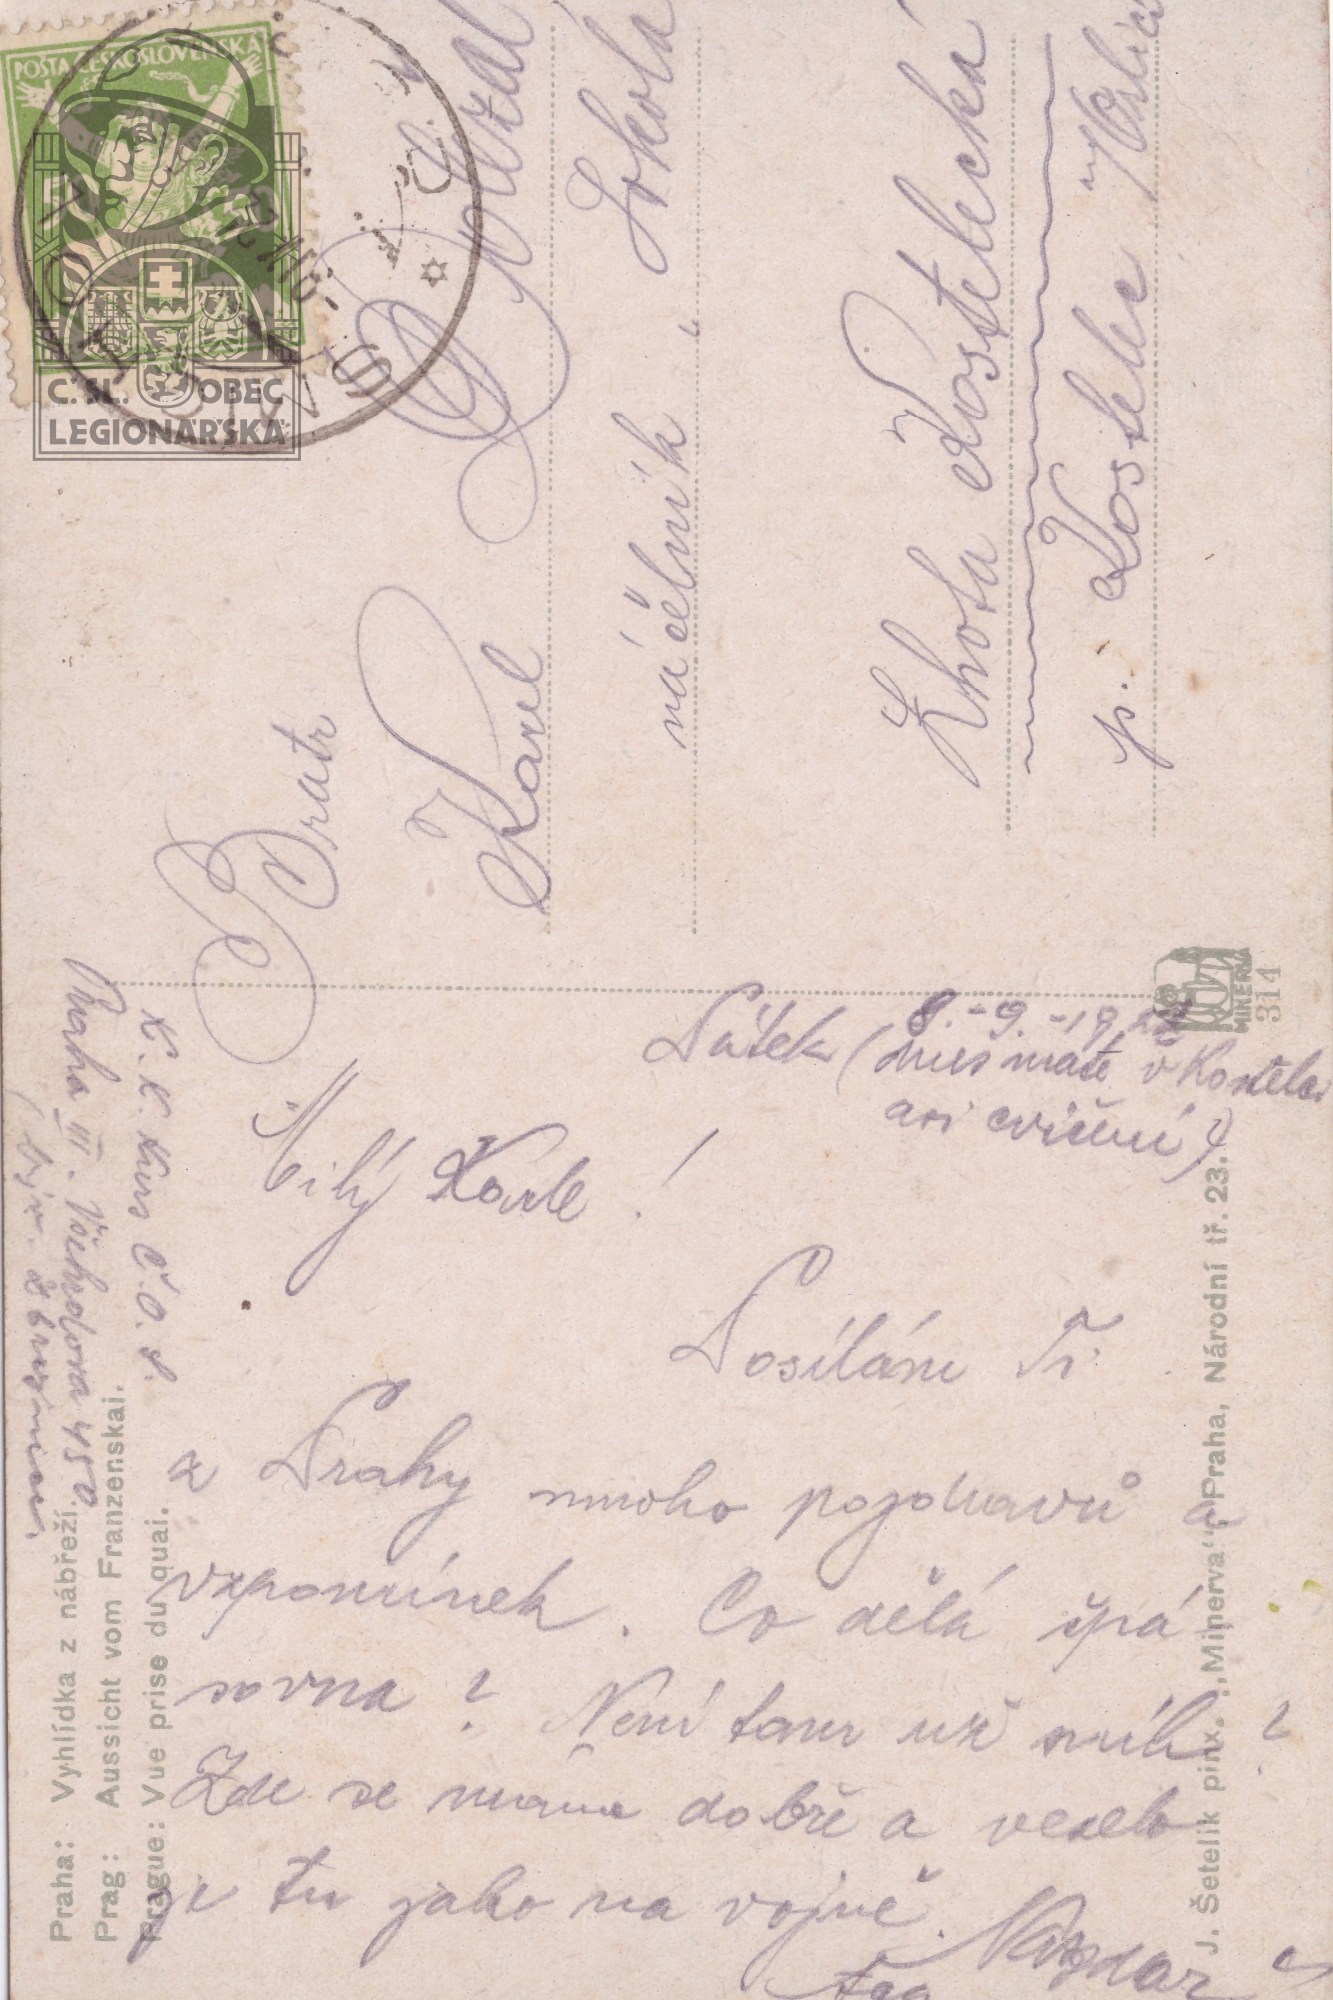 POŠTA ČESKOSLOVENSKÁ
Č. SL. OBEC
LEGIONÁŘSKÁ
Bratr
Karel Doležal
náčelník „Sokola
Lhota Kostelecká
p. Kostelec n/Orlicí
MINERVA
314
Pátek (
8.-9.-19
dnes máte v Kostelci
asi cvičení)
Milý Karle!
Posílám Ti
z Prahy mnoho pozdravů a
vzpomínek. Co dělá spá
sovna? Není tam už sníh?
Zde se máme dobře a veselo
je tu jako na vojně. Nazdar
K. K. kurs Č.O.S.
Praha III. 450
Praha: Vyhlídka z nábřeží.
Prag: Aussicht vom Franzenskai.
Prague: Vue prise du quai.
J. Šetelík pinx. „Minerva“, Praha, Národní tř. 23.